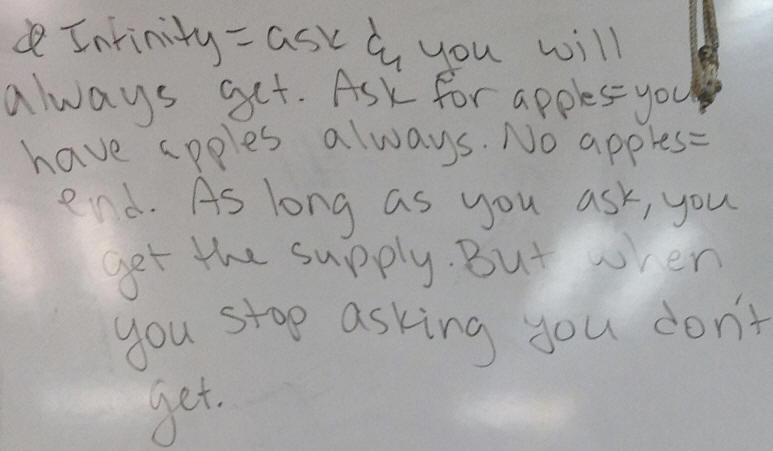 Infinity = ask & you will
always get. Ask for apples = you
have apples always. No apples =
end. As long as you ask, you
get the supply. But when
you stop asking you don't
get.